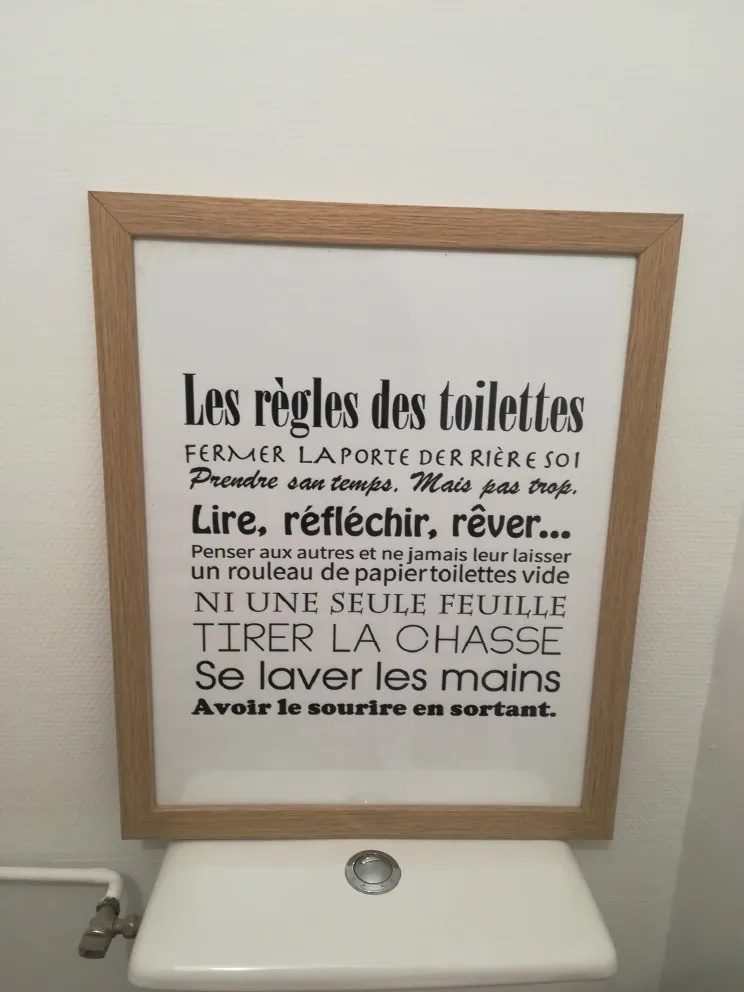 Les règles des toilettes
FERMER LA PORTE DERRIÈRE SOI
Prendre san temps. Mais pas trop.
Lire, réfléchir, rêver...
Penser aux autres et ne jamais leur laisser
un rouleau de papier toilettes vide
NI UNE SEULE FEUILLE
TIRER LA CHASSE
Se laver les mains
Avoir le sourire en sortant.